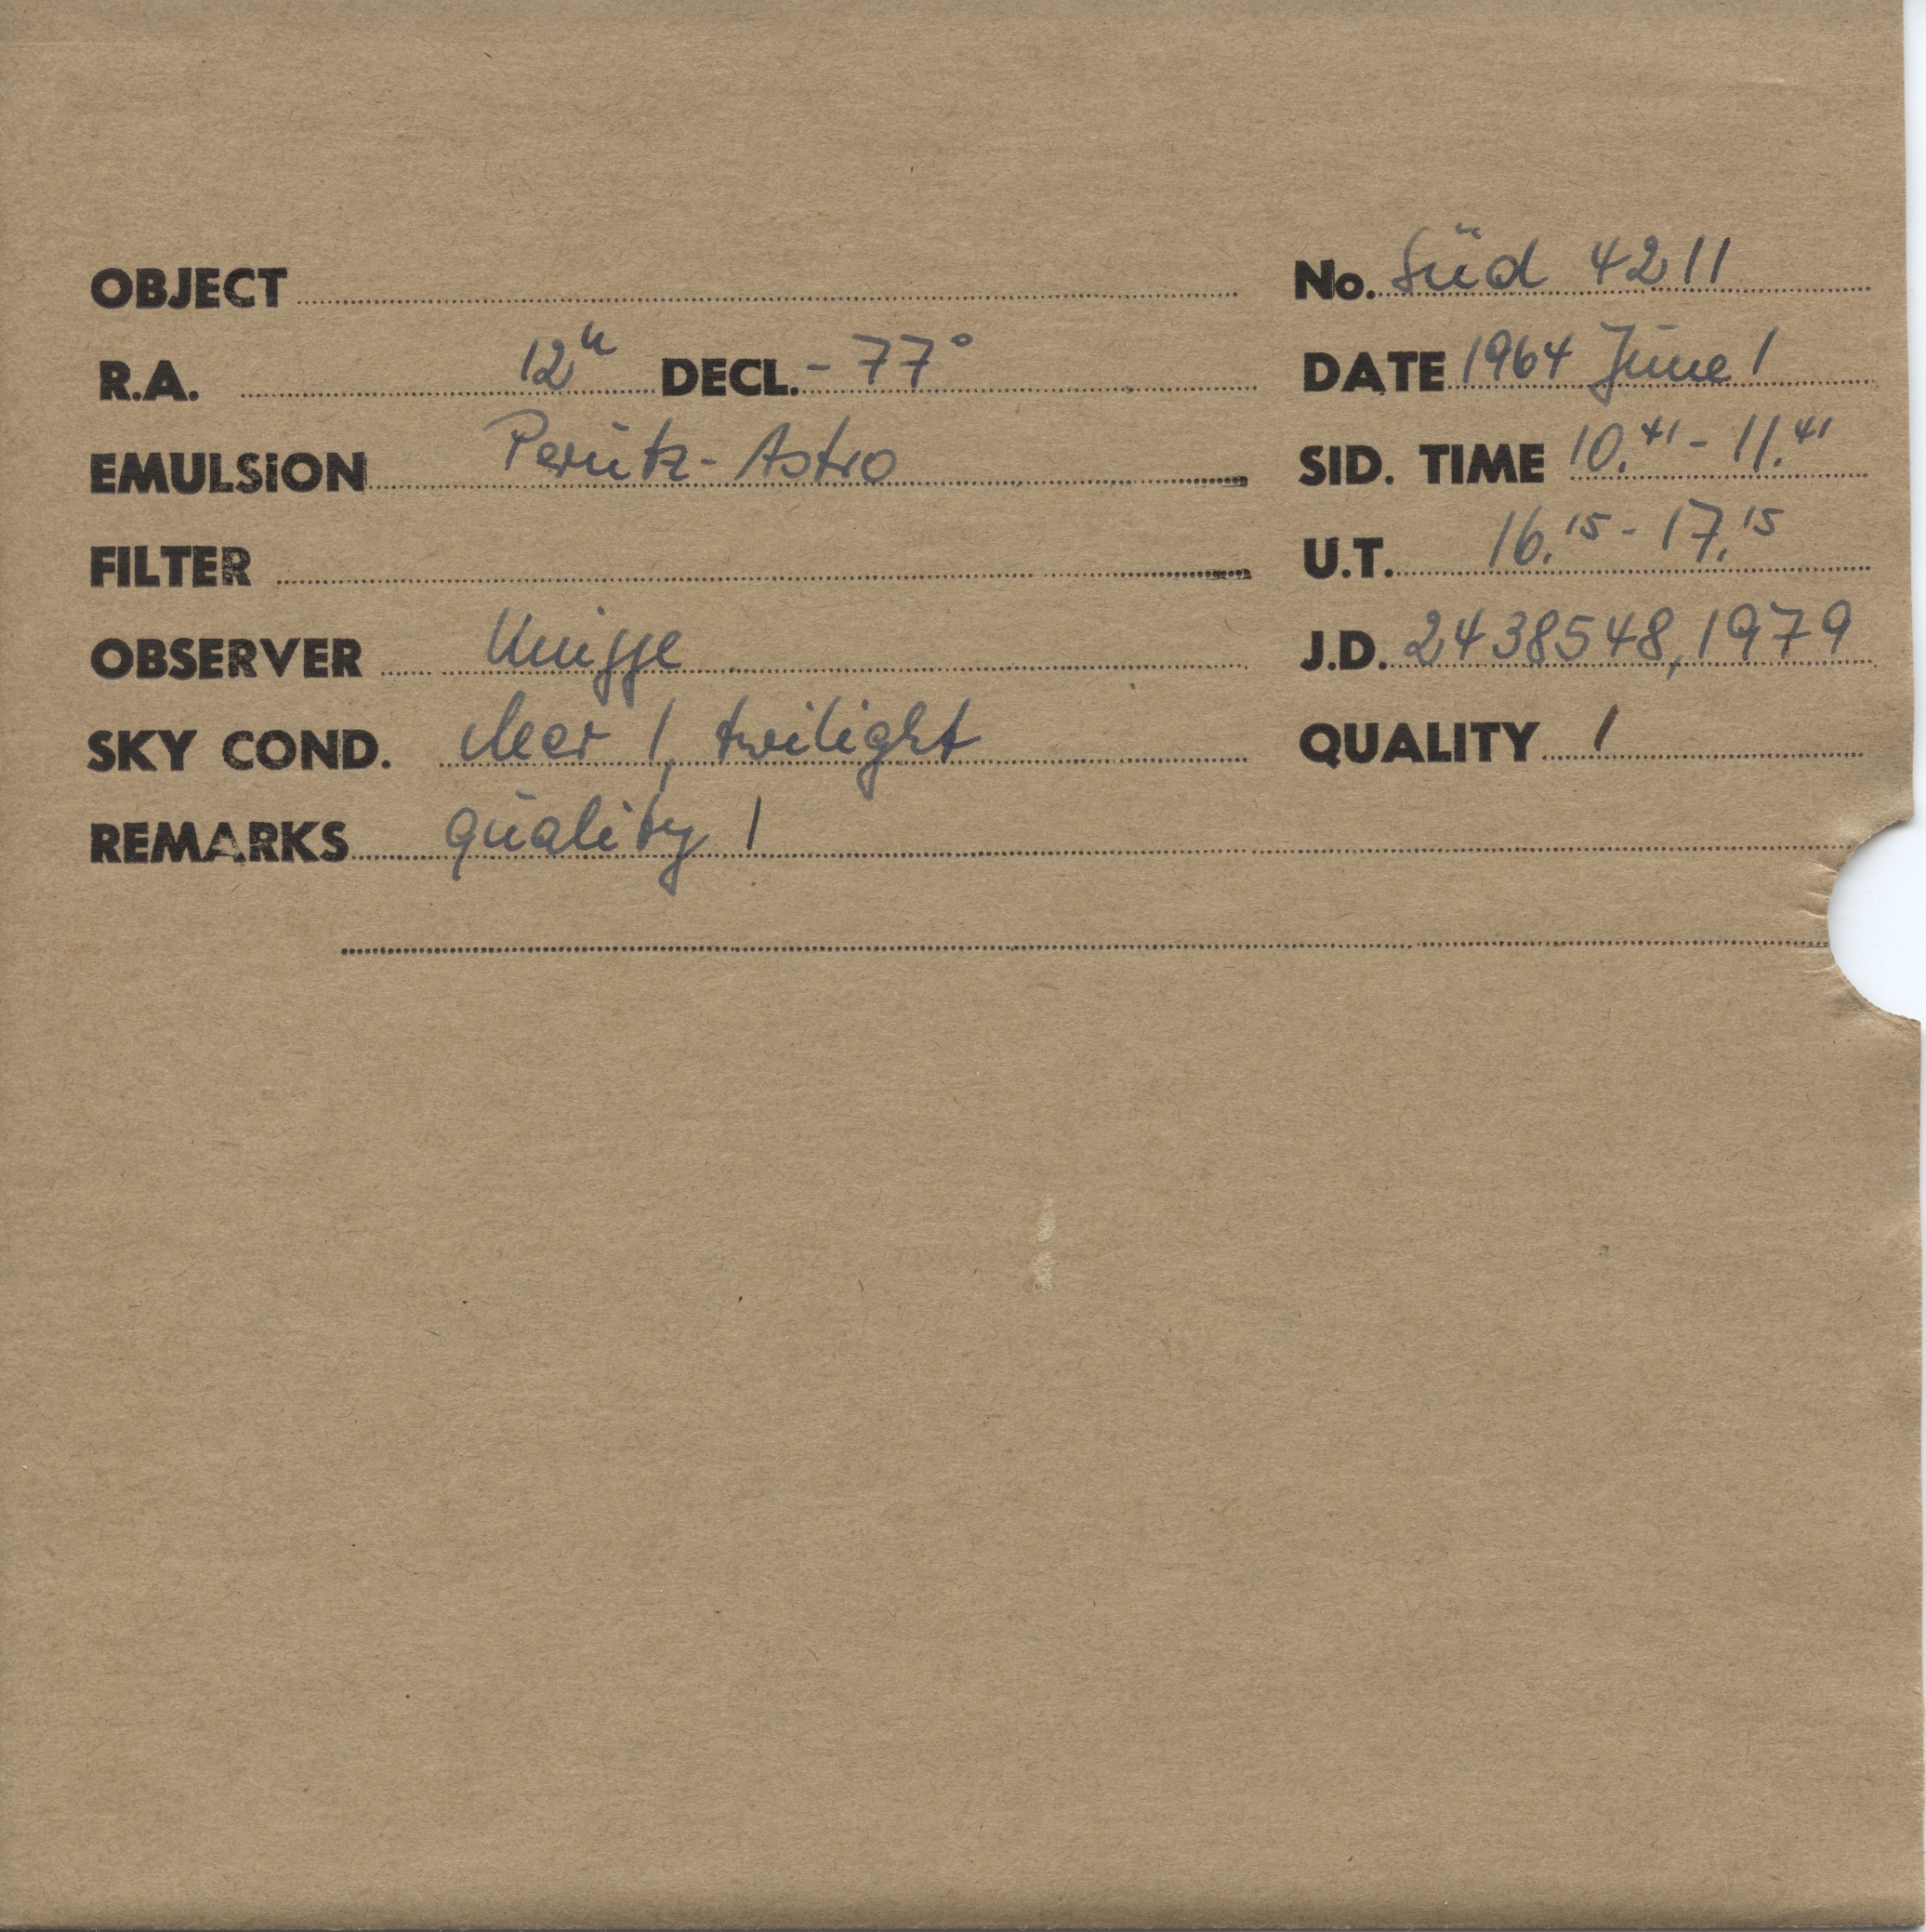 OBJECT No. Süd 4211
R.A. 12h DECL. -77°
DATE 1964 June 1
EMULSION Perutz-Astro
SID. TIME 10.41 - 11.41
FILTER
U.T. 16.15 - 17.15
OBSERVER Knigge
J.D. 2438548,1979
SKY COND. clear 1, twilight
QUALITY 1
REMARKS quality 1